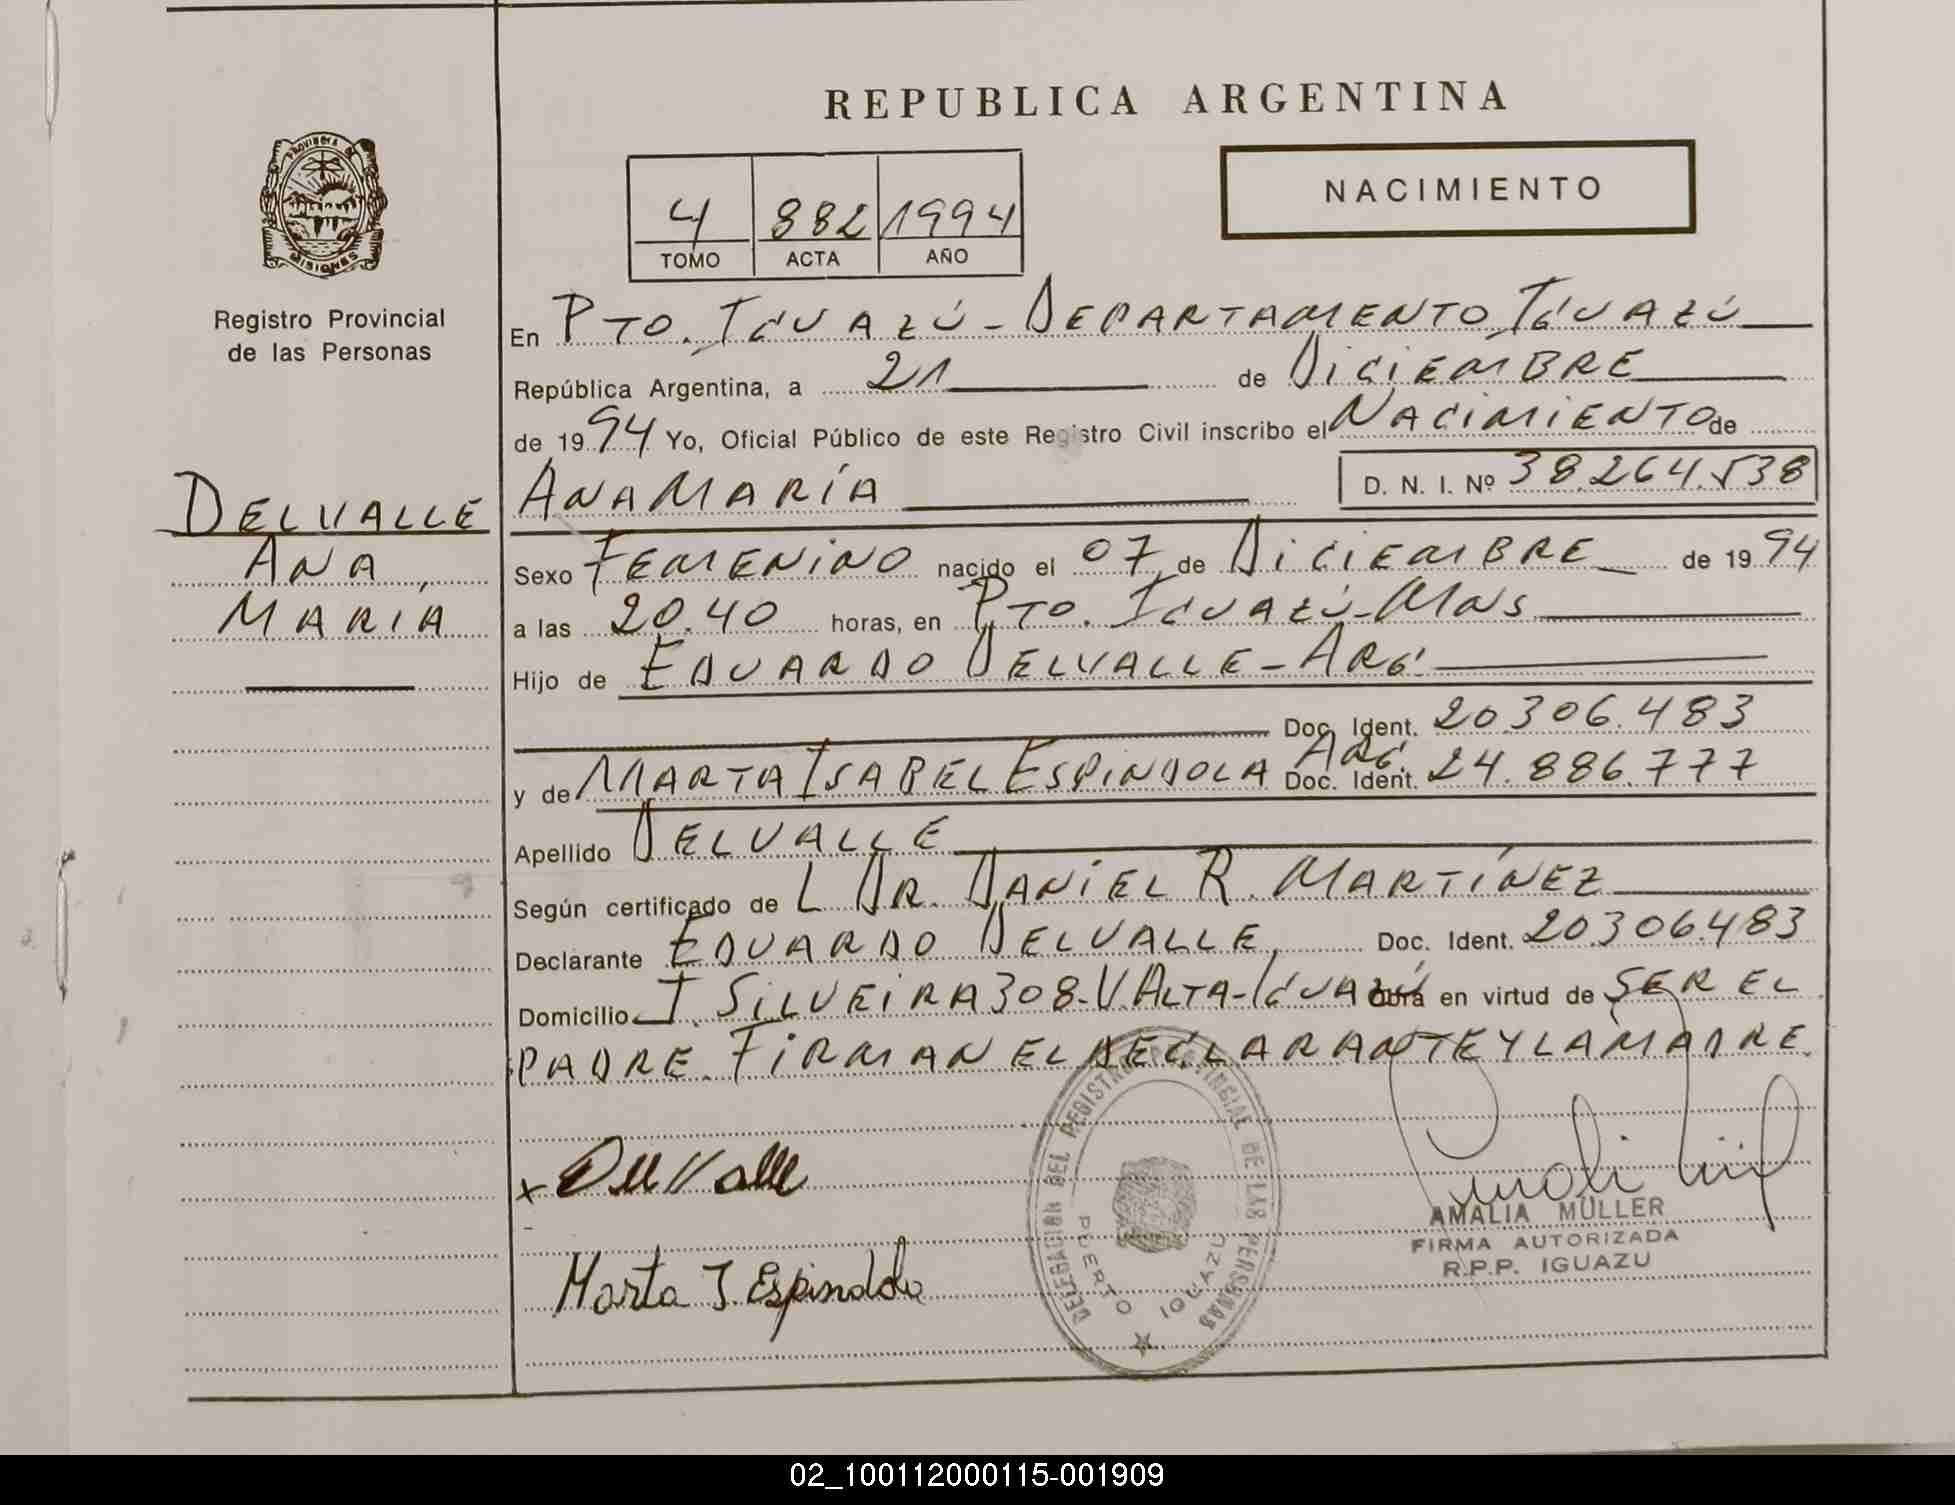 REPUBLICA ARGENTINA
NACIMIENTO
4 882 1994
TOMO ACTA AÑO
PROVINCIA DE
MISIONES
Registro Provincial
de las Personas
DELVALLE
ANA
MARÍA
En PTO. IGUAZÚ - DEPARTAMENTO IGUAZÚ
República Argentina, a 21 de DICIEMBRE
de 1994 Yo, Oficial Público de este Registro Civil inscribo el NACIMIENTO de
ANA MARÍA D. N. I. Nº 38.264.538
Sexo FEMENINO nacido el 07 de DICIEMBRE de 1994
a las 20.40 horas, en PTO. IGUAZÚ - MNS
Hijo de EDUARDO DELVALLE - ARG.
Doc. Ident. 20.306.483
y de MARTA ISABEL ESPINDOLA ARG. Doc. Ident. 24.886.777
Apellido DELVALLE
Según certificado de L DR. DANIEL R. MARTÍNEZ
Declarante EDUARDO DELVALLE, Doc. Ident. 20.306.483
Domicilio J. SILVEIRA 308 - V. ALTA - IGUAZÚ obra en virtud de SER EL
PADRE. FIRMAN EL DECLARANTE Y LA MADRE.
x DelValle
Marta I Espindola
DELEGACION DEL REGISTRO PROVINCIAL DE LAS PERSONAS
PUERTO IGUAZU
AMALIA MÜLLER
FIRMA AUTORIZADA
R.P.P. IGUAZU
02_100112000115-001909